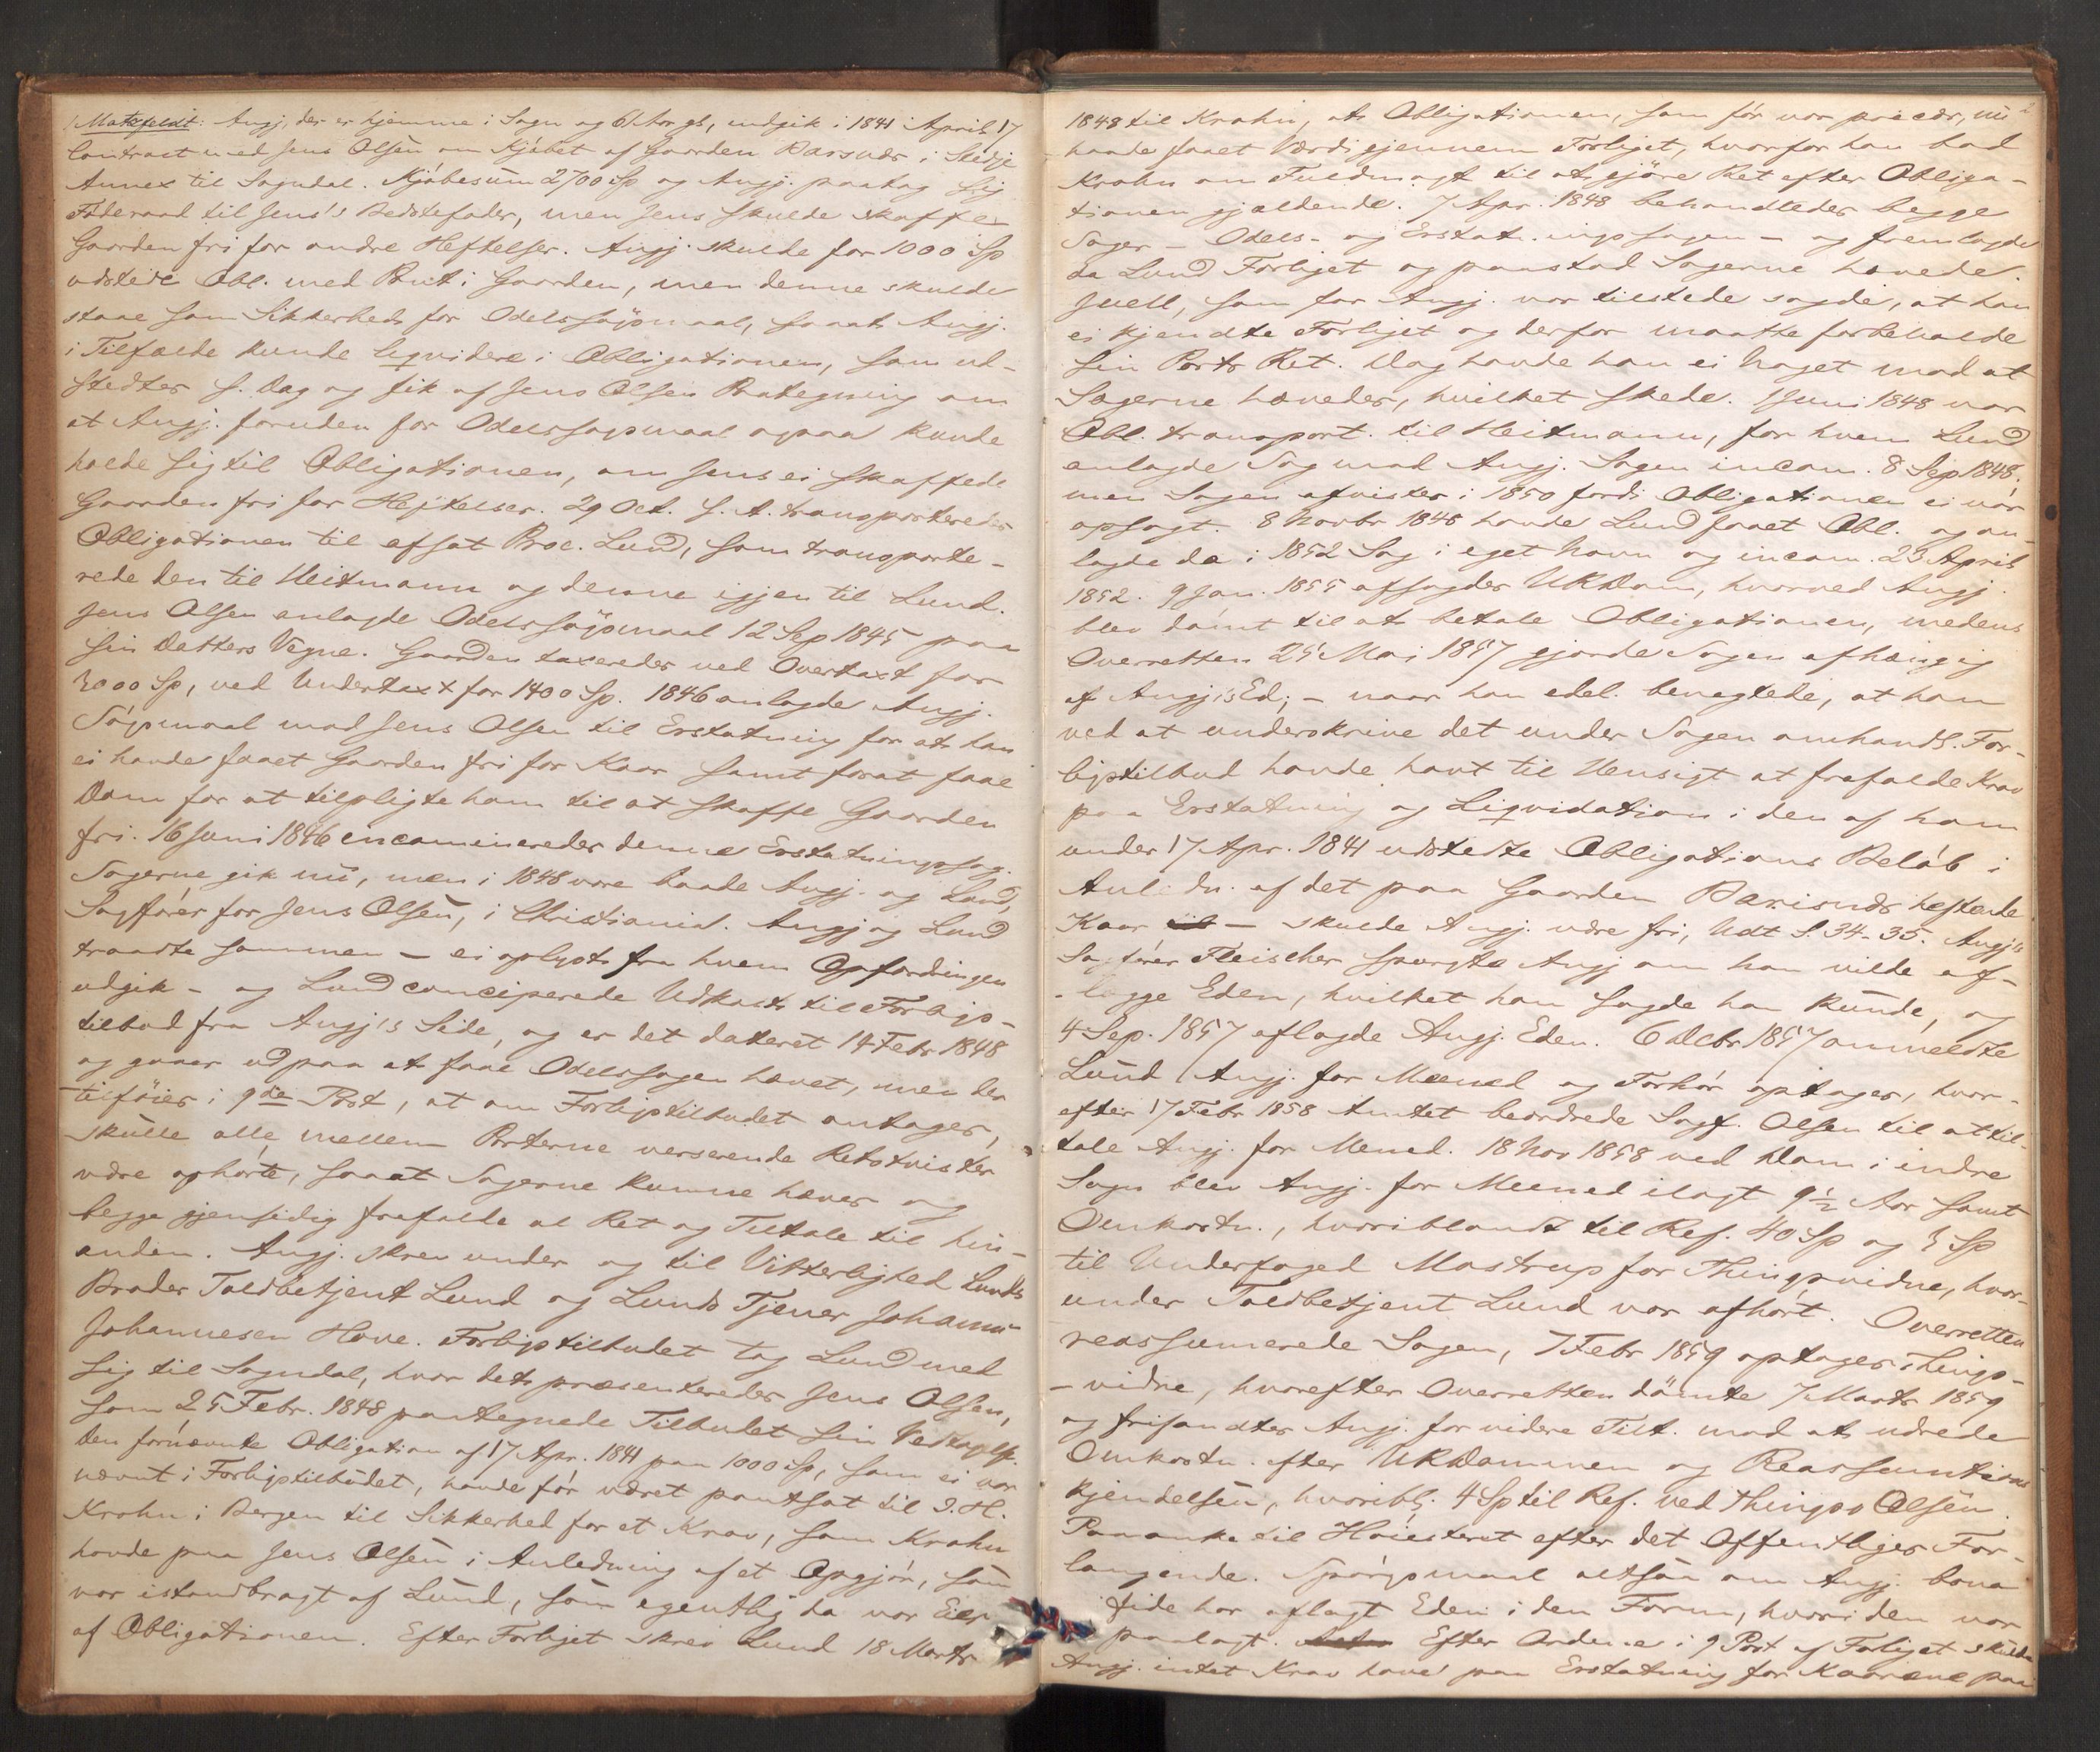 1/ Matzfeldt: Angj, der er hjemme i Sogn og 61 Aar gl, indgik i 1841 i April 17
Contract med Jens Olsen om Kjøbet af Gaarden Barsnæs i Stedje
Annex til Sogndal. Kjøbesum 2700 Sp og Angj. paatog sig
Føderaad til Jens's Bedstefader, men Jens skulde skaffe
Gaarden fri for andre Heftelser. Angj. skulde for 1000 Sp
udstede Obl. med Pant i Gaarden, men denne skulde
staae som Sikkerhed for Odelssøgsmaal, saaat Angj.
i Tilfælde kunde liqvidere i Obligationen, som ud-
stedtes s. Dag og fik af Jens Olsen Paategning om
at Angj. foruden for Odelssøgsmaal ogsaa kunde
holde sig til Obligationen, om Jens ei skaffede
Gaarden fri for Heftelser. 29 Oct. s. A. transporteredes
Obligationen til afsat Proc. Lund, som transporte-
rede den til Heitmann og denne igjen til Lund.
Jens Olsen anlagde Odelssøgsmaal 12 Sep 1845 paa
sin Datters Vegne. Gaarden taxeredes ved Overtaxt for
3000 Sp, ved Undertaxt for 1400 Sp. 1846 anlagde Angj.
Søgsmaal mod Jens Olsen til Erstatning for at han
ei havde faaet Gaarden fri for Kaar samt forat faae
Dom for at tilpligte ham til at skaffe Gaarden
fri. 16 Juni 1846 incamineredes denne Erstatningssag.
Sagerne gik nu, men i 1848 vare baade Angj. og Lund,
Sagfører for Jens Olsen, i Christiania. Angj og Lund
traadte sammen – ei oplyst fra hvem Opfordringen
udgik – og Lund conciperede Udkast til Forligs-
tilbud fra Angj's Side, og er det dateret 14 Febr 1848
og gaaer ud paa at faae Odelssagen hævet, men der
tilføies i 9de Post, at om Forligstilbudet antages,
skulle alle mellem Parterne verserende Retstvister
være ophørte, saaat Sagerne kunne hæves og
begge gjensidig frafalde al Ret og Tiltale til hin-
anden. Angj. skrev under og til Vitterlighed Lunds
Broder Toldbetjent Lund og Lunds Tjener Johannes
Johannesen Hove. Forligstilbudet tog Lund med
sig til Sogndal, hvor det præsenteredes Jens Olsen,
som 25 Febr. 1848 paategnede Tilbudet sin Vedtagelse.
Den fornævnte Obligation af 17 Apr. 1841 paa 1000 Sp, som ei var
nævnt i Forligstilbudet, havde før været pantsat til D. H.
Krohn i Bergen til Sikkerhed for et Krav, som Krohn
havde paa Jens Olsen i Anledning af et Opgjør, som
var istandbragt af Lund, som egentlig da var Eier
af Obligationen. Efter Forliget skrev Lund 18 Marts
2
1848 til Krohn, at Obligationen, som før var precær, nu
havde faaet Værdi gjennem Forliget, hvorfor han bad
Krohn om Fuldmagt til at gjøre Ret efter Obliga-
tionen gjældende. 7 Apr. 1848 behandledes begge
Sager – Odels- og Erstatningssagen – og fremlagde
da Lund Forliget og paastod Sagerne hævede.
Juell, som for Angj. var tilstede sagde, at han
ei kjendte Forliget og derfor maatte forbeholde
sin Parts Ret. Dog havde han ei Noget mod at
Sagerne hævedes, hvilket skede. 1 Juni 1848 var
Obl. transport. til Heitmann, for hvem Lund
anlagde Sag mod Angj. Sagen incam. 8 Sep 1848,
men Sagen afvistes i 1850 fordi Obligationen ei var
opsagt. 8 Novbr 1848 havde Lund faaet Obl. og an-
lagde da i 1852 Sag i eget Navn og incam. 23 April
1852. 9 Jan. 1855 afsagdes URdom, hvorved Angj.
blev dømt til at betale Obligationen, medens
Overretten 25 Mai 1857 gjorde Sagen afhængig
af Angj's Ed; – naar han edel. benegtede, at han
ved at underskrive det under Sagen omhandl. For-
ligstilbud havde havt til Hensigt at frafalde Krav
paa Erstatning og Liqvidation i den af ham
under 17 Apr. 1841 udstedte Obligations Beløb i
Anledn. af det paa Gaarden Barsnæs heftende
Kaar – skulde Angj. være fri, Udt S. 34-35. Angj's
Sagfører Fleischer spurgte Angj om han vilde af-
lægge Eden, hvilket han sagde han kunde, og
4 Sep. 1857 aflagde Angj. Eden. 6 Decbr 1857 anmeldte
Lund Angj. for Meened og Forhør optages, hvor-
efter 17 Febr 1858 Amtet beordrede Sagf. Olsen til at til-
tale Angj. for Mened. 18 Nov 1858 ved Dom i indre
Sogn blev Angj. for Meened ilagt 9½ Aar samt
Omkostn., hvoriblandt til Ref. 40 Sp og 3 Sp
til Underfoged Mastrup for Thingsvidne, hvor-
under Toldbetjent Lund var afhørt. Overretten
reassumerede Sagen, 7 Febr 1859 optages Things-
vidne, hvorefter Overretten dømte 7 Marts 1859
og frifandtes Angj. for videre Tilt. mod at udrede
Omkostn. efter URdommen og Reassumtions
kjendelsen, hvoribl. 4 Sp til Ref. ved Thingsv Olsen.
Paaanke til Høiesteret efter det Offentliges For-
langende. Spørgsmaal altsaa om Angj. bona
fide har aflagt Eden i den Form, hvori den var
paalagt. Efter Ordene i 9 Post af Forliget skulde
Angj. intet Krav have paa Erstatning for Kaarene paa